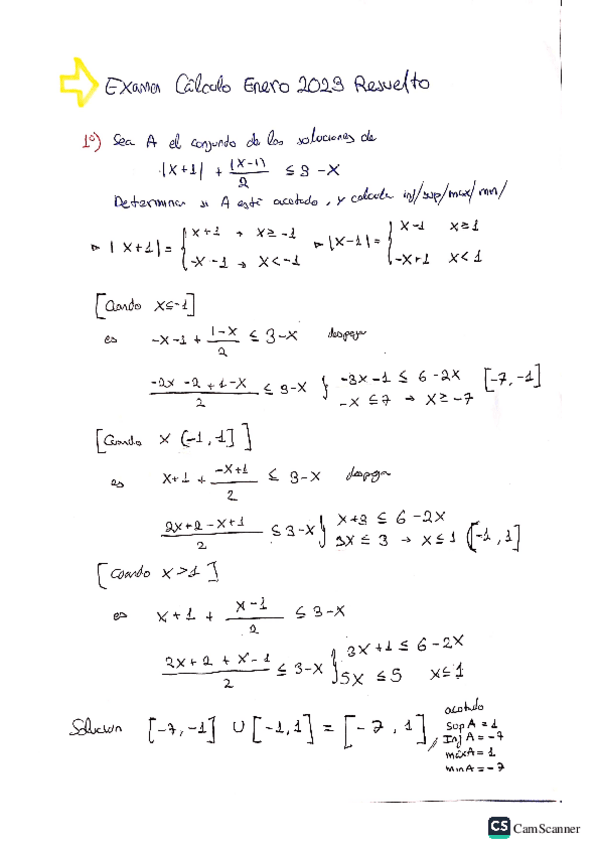 Examen Cálculo Enero 2023 Resuelto
1º) Sea A el conjunto de las soluciones de
|x+1| + |x-1|/2 ≤ 3 - x
Determinar si A está acotado, y calcula inf/sup/max/min/
▷ |x+1| = { x+1 → x ≥ -1 ; -x-1 → x < -1 ▷ |x-1| = { x-1 x ≥ 1 ; -x+1 x < 1
[Cuando x≤-1]
es -x-1 + (1-x)/2 ≤ 3-x despejar
(-2x-2+1-x)/2 ≤ 3-x } -3x-1 ≤ 6-2x ; -x ≤ 7 → x ≥ -7 [-7,-1]
[Cuando x (-1,1]]
es x+1 + (-x+1)/2 ≤ 3-x despejar
(2x+2-x+1)/2 ≤ 3-x } x+3 ≤ 6-2x ; 3x ≤ 3 → x ≤ 1 (-1,1]
[Cuando x>1]
es x+1 + (x-1)/2 ≤ 3-x
(2x+2+x-1)/2 ≤ 3-x } 3x+1 ≤ 6-2x ; 5x ≤ 5 x≤1
Solucion [-7,-1] ∪ [-1,1] = [-7,1],
acotado
Sup A = 1
Inf A = -7
máx A = 1
min A = -7
CS CamScanner